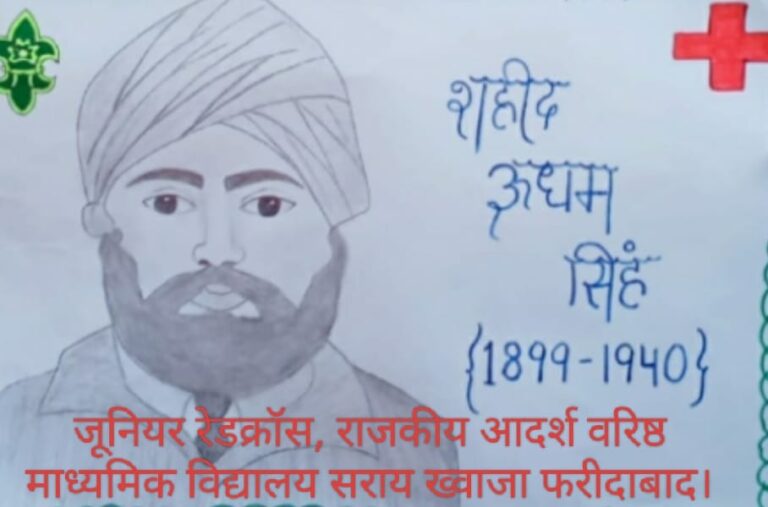 शहीद
ऊधम
सिंहं
{1899-1940}
जूनियर रेडक्रॉस, राजकीय आदर्श वरिष्ठ
माध्यमिक विद्यालय सराय ख्वाजा फरीदाबाद।